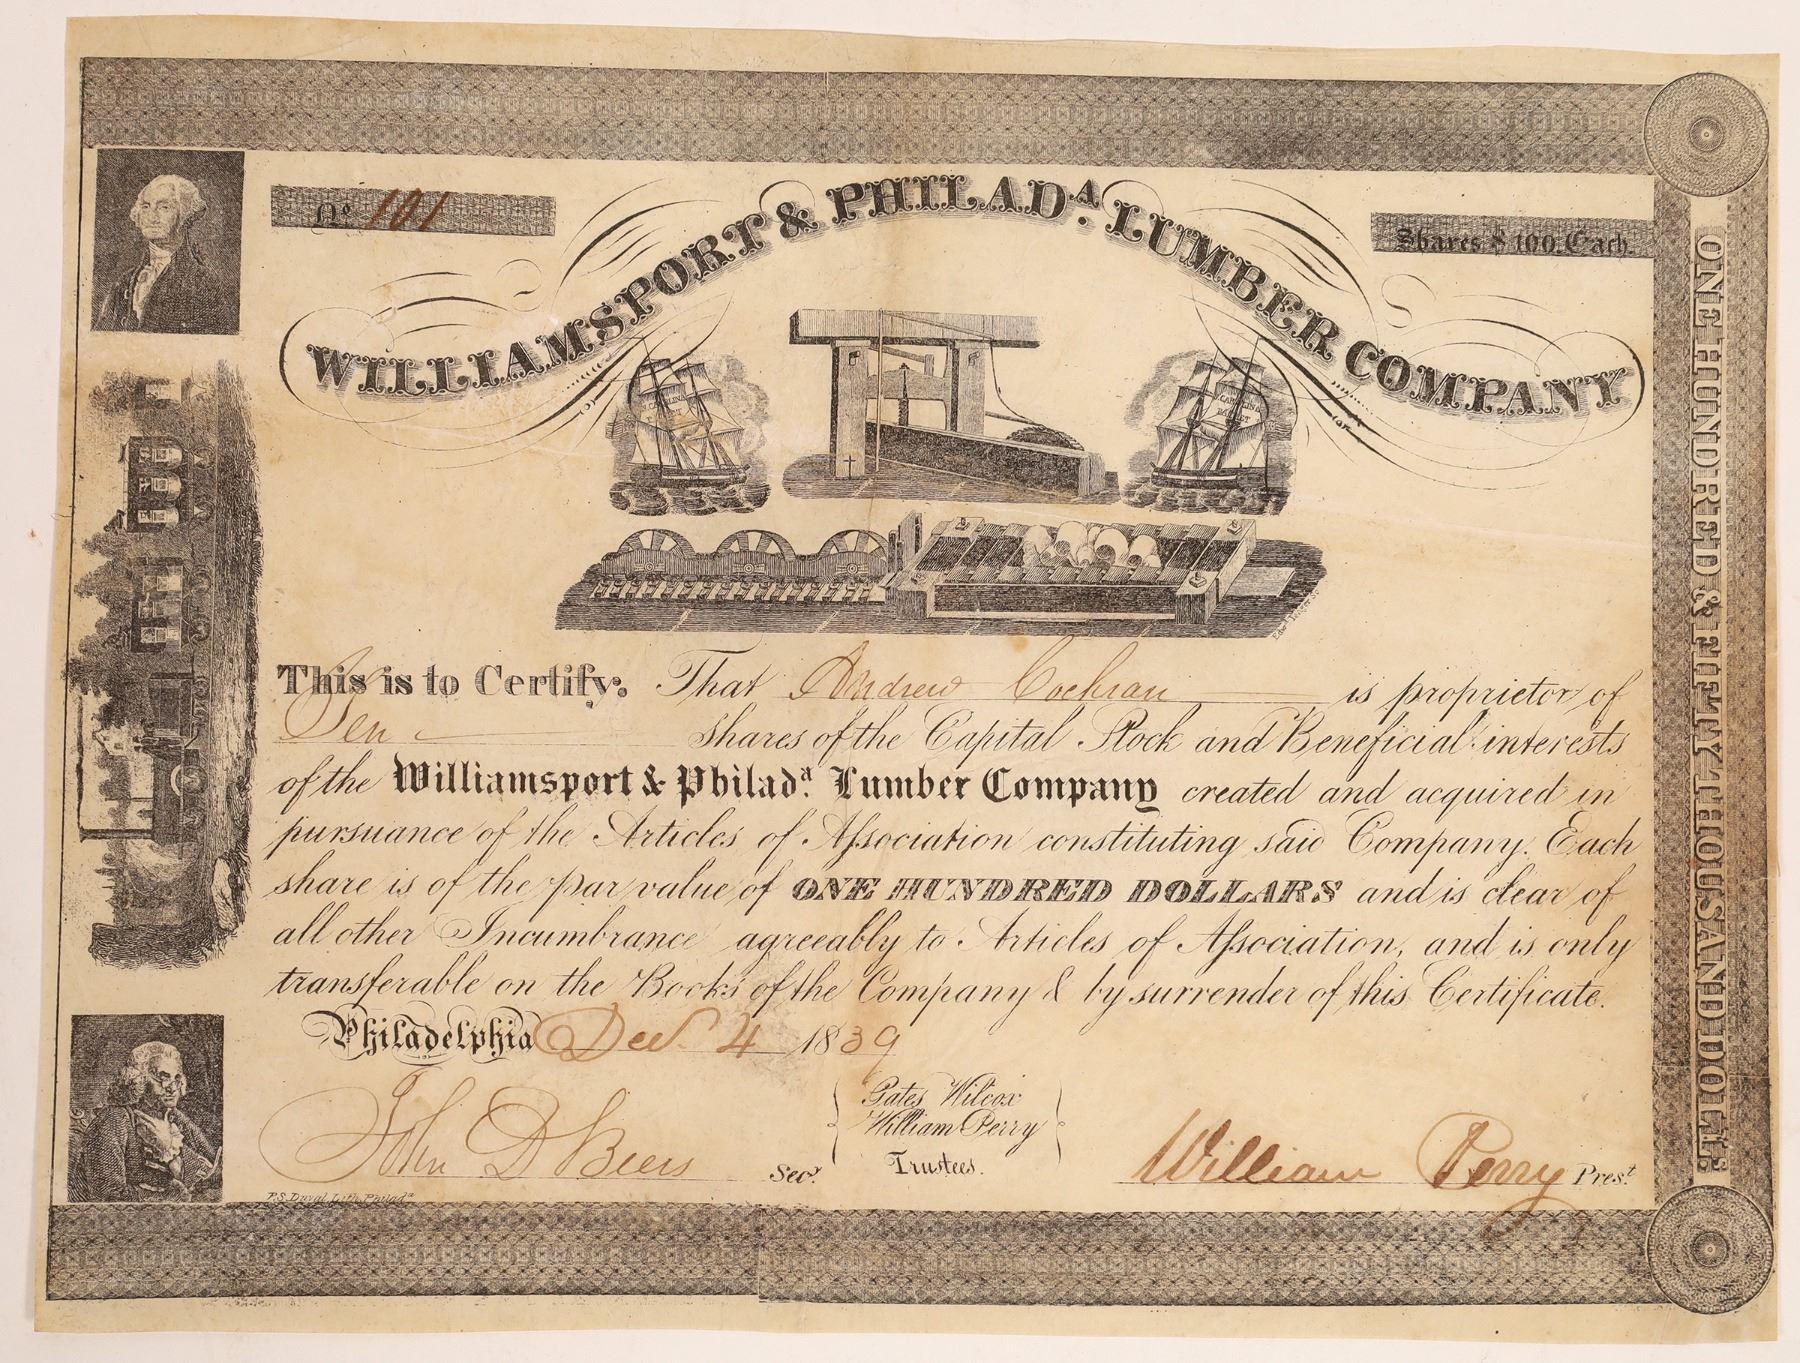 No 101
WILLIAMSPORT & PHILADA. LUMBER COMPANY
Shares $ 100. Each.
ONE HUNDRED & FIFTY THOUSAND DOLLS.
This is to Certify. That Andrew Cochran is proprietor of
Ten shares of the Capital Stock and Beneficial interests
of the Williamsport & Philada. Lumber Company created and acquired in
pursuance of the Articles of Association constituting said Company. Each
share is of the par value of ONE HUNDRED DOLLARS and is clear of
all other Incumbrance agreeably to Articles of Association, and is only
transferable on the Books of the Company & by surrender of this Certificate.
Philadelphia Dec. 4 1839
John D Beers Secy.
Gates Wilcox
William Perry
Trustees.
William Perry Prest.
P.S. Duval, Lith. Philada.